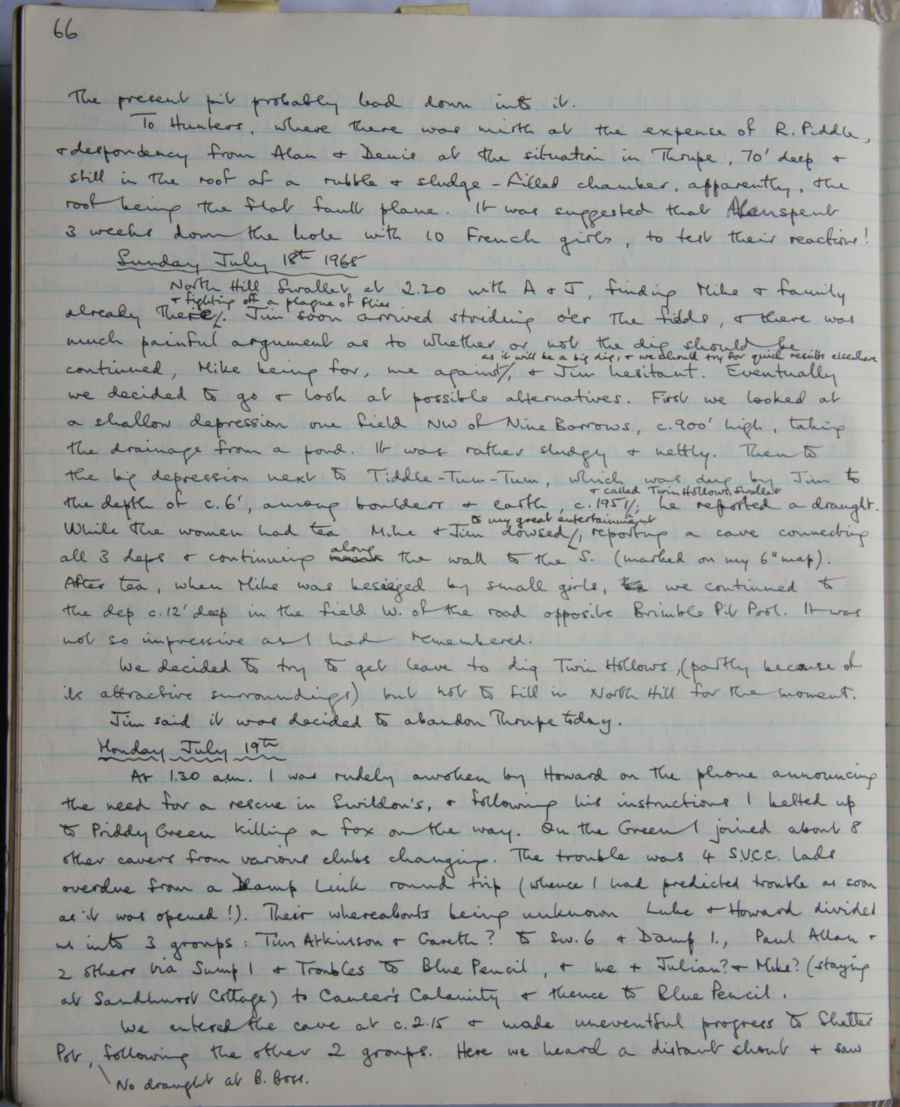 66
The present pit probably lead down into it.
To Hunters, where there was mirth at the expense of R. Piddle,
+ despondency from Alan + Denis at the situation in Thrupe, 70' deep +
still in the roof of a rubble + sludge-filled chamber, apparently, the
roof being the flat fault plane. It was suggested that Alan spent
3 weeks down the hole with 10 French girls, to test their reactions!
Sunday July 18th 1965
North Hill Swallet at 2.20 with A + J, finding Mike + family
+ fighting off a plague of flies
already there. Jim soon arrived striding o'er the fields, + there was
much painful argument as to whether or not the dig should be
as it will be a big dig, + we should try for quick results elsewhere
continued, Mike being for, me against, + Jim hesitant. Eventually
we decided to go + look at possible alternatives. First we looked at
a shallow depression one field NW of Nine Barrows, c.900' high, taking
the drainage from a pond. It was rather sludgy + nettly. Then to
the big depression next to Tiddle-Tum-Tum, which was dug by Jim to
+ called Twin Hollows Swallet
the depth of c.6', among boulders + earth, c.1951, he reported a draught.
to my great entertainment
While the women had tea Mike + Jim dowsed, reporting a cave connecting
along
all 3 deps + continuing the wall to the S. (marked on my 6" map).
After tea, when Mike was besieged by small girls, we continued to
the dep c.12' deep in the field W. of the road opposite Brimble Pit Pool. It was
not so impressive as I had remembered.
We decided to try to get leave to dig Twin Hollows, (partly because of
its attractive surroundings) but not to fill in North Hill for the moment.
Jim said it was decided to abandon Thrupe today.
Monday July 19th
At 1.30 a.m. I was rudely awoken by Howard on the phone announcing
the need for a rescue in Swildon's, + following his instructions I belted up
to Priddy Green killing a fox on the way. On the Green I joined about 8
other cavers from various clubs changing. The trouble was 4 SVCC. lads
overdue from a Damp Link round trip (whence I had predicted trouble as soon
as it was opened!). Their whereabouts being unknown Luke + Howard divided
us into 3 groups: Tim Atkinson + Gareth? to Sw. 6 + Damp L., Paul Allan +
2 others via Sump 1 + Troubles to Blue Pencil, + me + Julian? + Mike? (staying
at Sandhurst Cottage) to Cancer's Calamity + thence to Blue Pencil.
We entered the cave at c.2.15 + made uneventful progress to Shatter
Pot, following the other 2 groups. Here we heard a distant shout + saw
No draught at B. Boss.